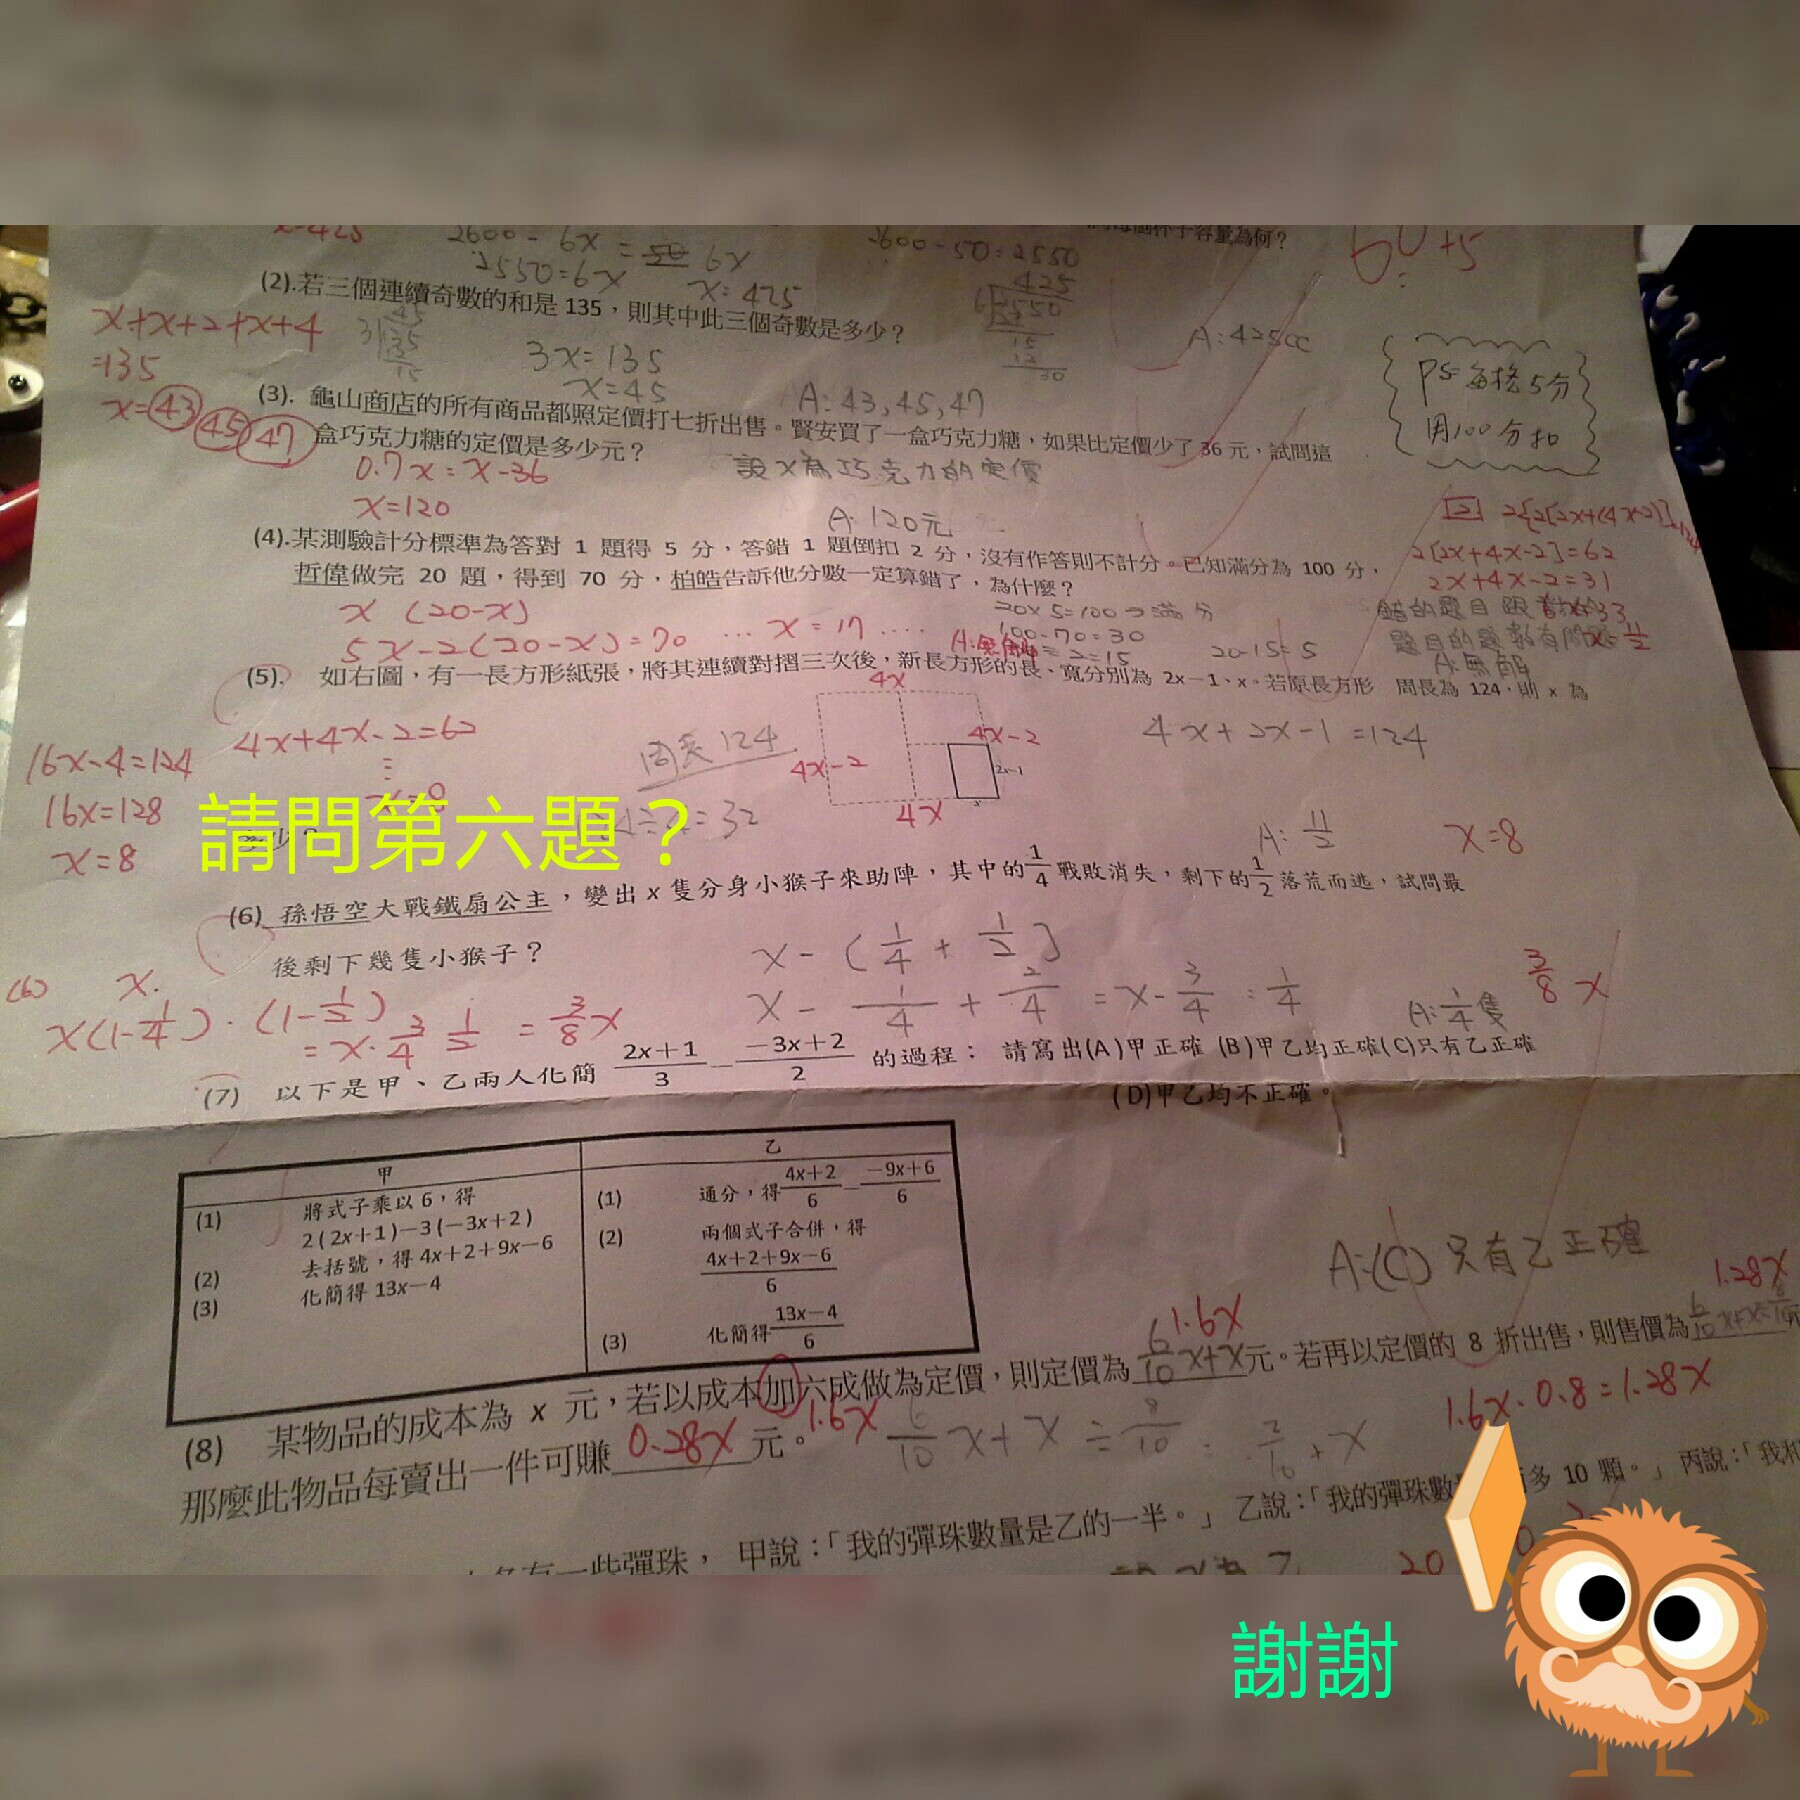 x=425
2600-6x=50 6x
2600-50=2550
60+5
2550=6x x=425
425
(2).若三個連續奇數的和是 135，則其中此三個奇數是多少？
x+x+2+x+4
=135
3x=135
x=45
A:425cc
x=43 45 47
A:43,45,47
PS=每格5分
用100分扣
(3). 龜山商店的所有商品都照定價打七折出售。賢安買了一盒巧克力糖，如果比定價少了 36 元，試問這
盒巧克力糖的定價是多少元？
0.7x=x-36
設x為巧克力的定價
x=120
A:120元
(4).某測驗計分標準為答對 1 題得 5 分，答錯 1 題倒扣 2 分，沒有作答則不計分。已知滿分為 100 分，
哲偉做完 20 題，得到 70 分，柏皓告訴他分數一定算錯了，為什麼？
2[2x+4x-2]=62
2x+4x-2=31
x (20-x)
20x5=100→滿分
5x-2(20-x)=70 … x=17 ….
100-70=30
20-15=5
A:無解
(5). 如右圖，有一長方形紙張，將其連續對摺三次後，新長方形的長、寬分別為 2x－1、x。若原長方形 周長為 124，則 x 為
4x
4x+4x-2=62
周長124
4x-2
4x+2x-1=124
16x-4=124
4x-2
2x-1
16x=128
請問第六題？
4x
A:11/2
x=8
x=8
(6) 孫悟空大戰鐵扇公主，變出 x 隻分身小猴子來助陣，其中的1/4戰敗消失，剩下的1/2落荒而逃，試問最
後剩下幾隻小猴子？
x-(1/4+1/2)
(6) x.
x(1-1/4)·(1-1/2)
x-1/4+2/4=x-3/4=1/4
A:1/4隻
3/8x
=x·3/4 1/2=3/8x
(7) 以下是甲、乙兩人化簡 2x+1/3－-3x+2/2 的過程： 請寫出(A)甲正確 (B)甲乙均正確(C)只有乙正確
(D)甲乙均不正確。
甲
乙
(1) 將式子乘以 6，得
2(2x+1)－3(－3x+2)
(2) 去括號，得 4x+2+9x－6
(3) 化簡得 13x－4
(1) 通分，得4x+2/6－-9x+6/6
(2) 兩個式子合併，得
4x+2+9x－6/6
(3) 化簡得13x－4/6
A:(C) 只有乙正確
1.28x
1.6x
(8) 某物品的成本為 x 元，若以成本加六成做為定價，則定價為6/10x+x元。若再以定價的 8 折出售，則售價為
1.6x
1.6x·0.8=1.28x
那麼此物品每賣出一件可賺0.28x元。
6/10x+x÷8/10=2/10+x
有一些彈珠， 甲說：「我的彈珠數量是乙的一半。」 乙說：「我的彈珠數 多 10 顆。」 丙說：「我和
20
謝謝